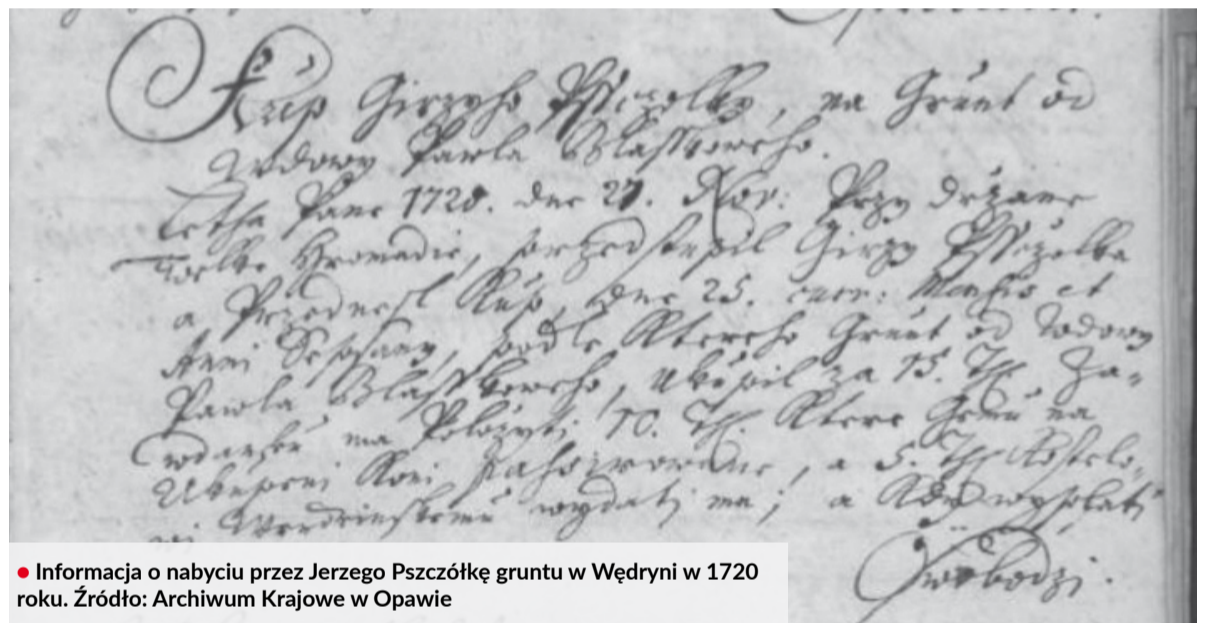 Kup Girzyho Pssczolky, na Grunt od
Wdowy Pawla Blasskoweho.
Letha Pane 1720. dne 27. Nov: Przy držane
Welke Hromadie, przedstupil Girzy Pssczolka
a Przednesl Kup, dne 25. curr: Mensis et
Anni Sepsany, podle Ktereho Grunt od Wdowy
Pawla Blasskoweho, Ukupil za 15. Th. Za-
wdanku ma Položyti 10. Th. Ktere Hned na
Ukupeni Koni, a 5. Th.
Wendrinskemu wydati ma; a Kdy wyplati
Swobodzi.
• Informacja o nabyciu przez Jerzego Pszczółkę gruntu w Wędryni w 1720
roku. Źródło: Archiwum Krajowe w Opawie